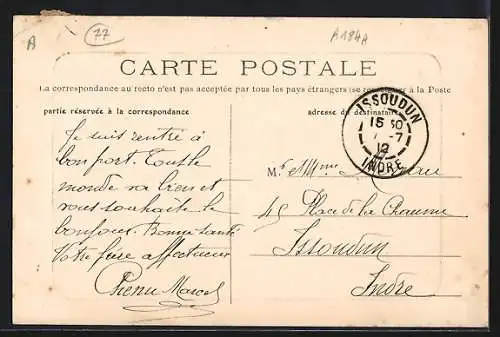 A
77
A184A
CARTE POSTALE
La correspondance au recto n'est pas acceptée par tous les pays étrangers (se renseigner à la Poste)
partie réservée à la correspondance
adresse du destinataire
ISSOUDUN
15 30
7-7
12
INDRE
Je suis rentré à
bon port. Tout le
monde va bien et
vous souhaite le
bonjour. Bonne santé
Votre
affectueux
Chenu Marcel
M. et Mme
45 Place de la Chaume
Issoudun
Indre